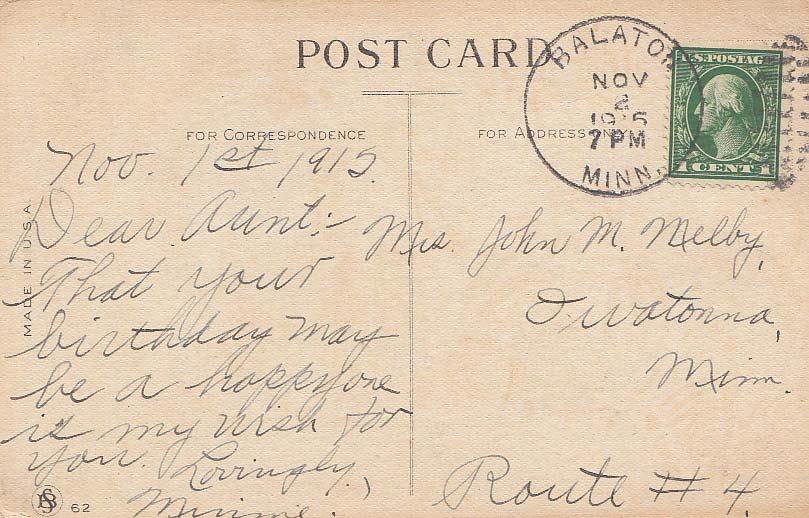 POST CARD
BALATON
NOV
2
1915
7 PM
MINN.
U.S. POSTAGE
1 CENT 1
FOR CORRESPONDENCE
FOR ADDRESS ONLY
MADE IN U.S.A.
Nov. 1st 1915.
Dear Aunt:-
That your
birthday may
be a happy one
is my wish for
you. Lovingly,
Minnie.
Mrs. John M. Melby,
Owatonna,
Minn.
Route #4.
62